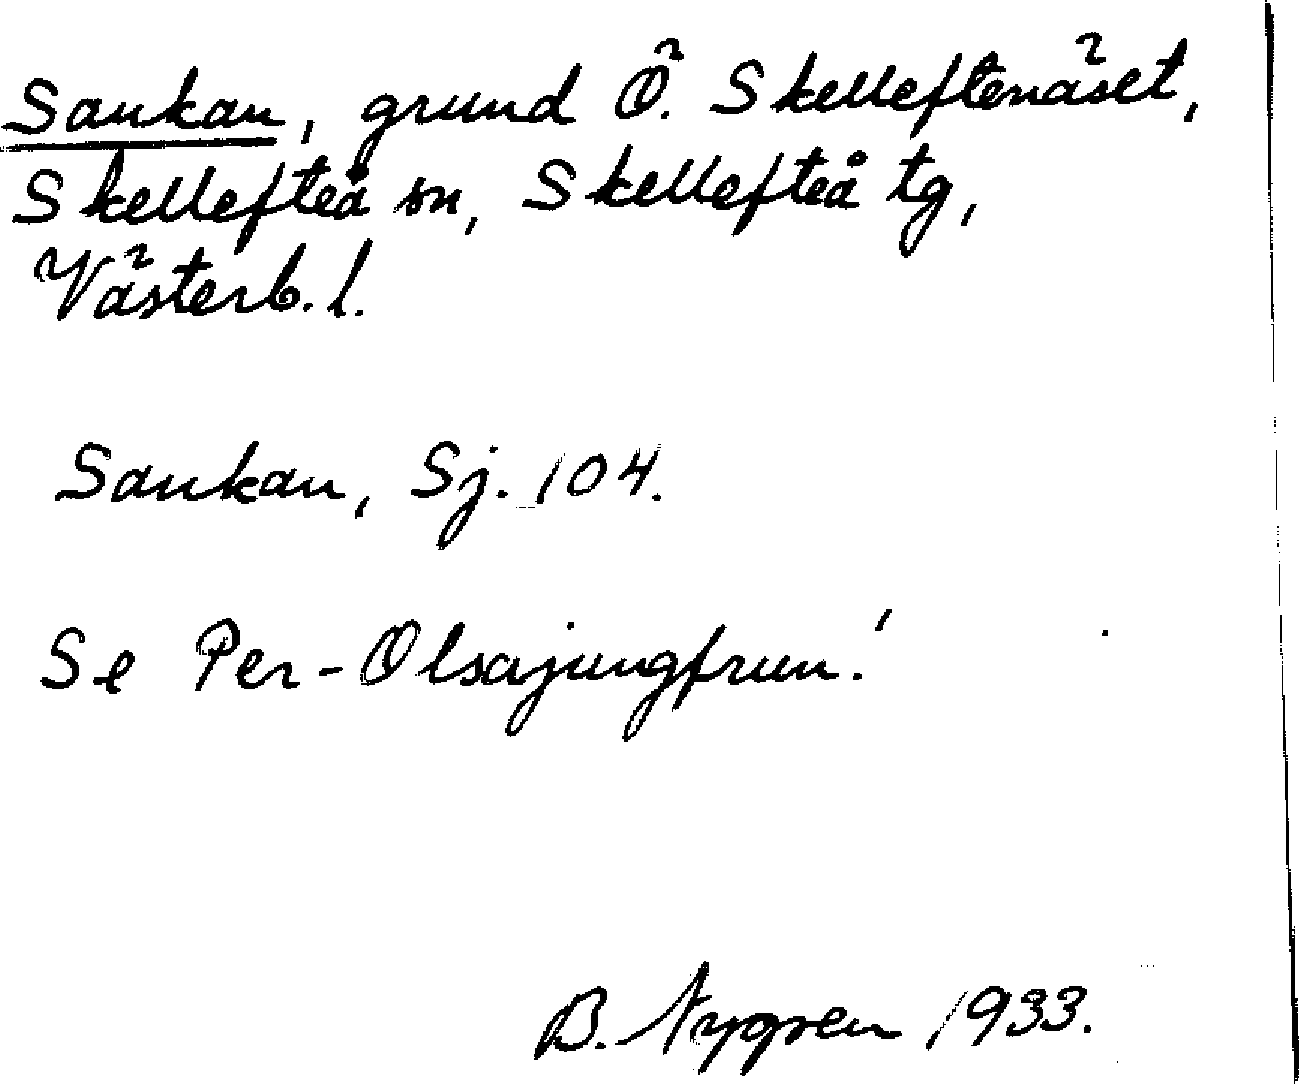 Sankan, grund Ö. Skelleftenäset,
Skellefteå sn, Skellefteå tg,
Västerb. l.
Sankan, Sj. 104.
Se Per-Olsajungfrun!
B. Nygren 1933.